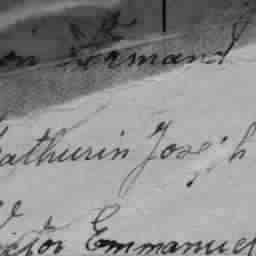 on Normand
athurin Joseph
ictor Emmanuel